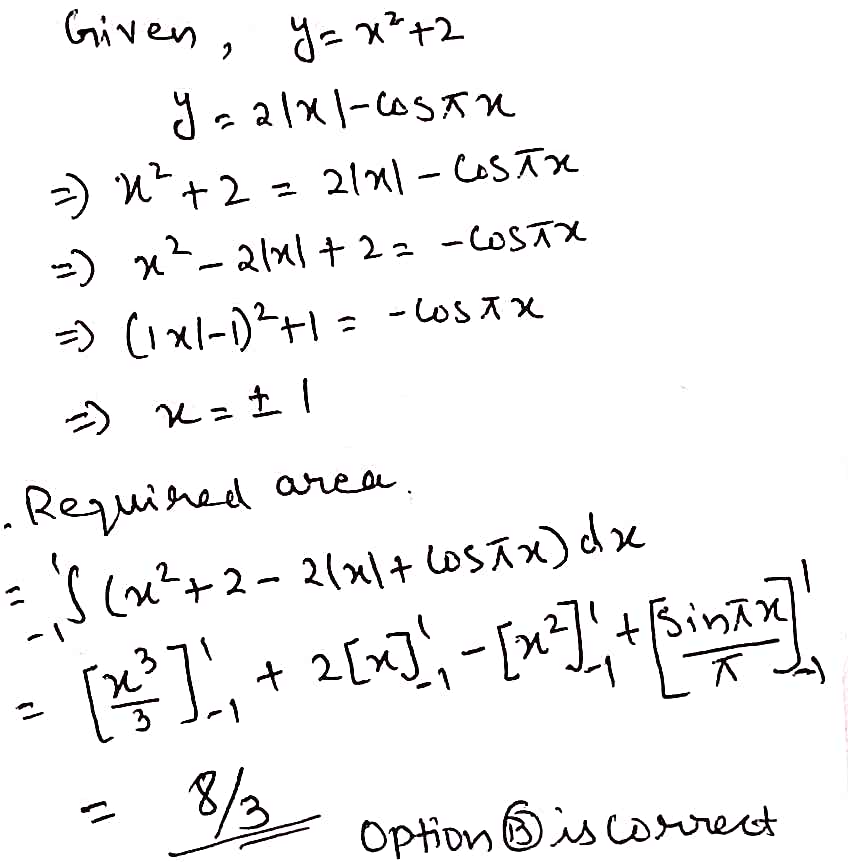 Given, y = x²+2
y = 2|x|-cosπx
⇒ x²+2 = 2|x| - cosπx
⇒ x²-2|x|+2 = -cosπx
⇒ (|x|-1)²+1 = -cosπx
⇒ x = ±1
. Required area.
= ₋₁∫¹ (x²+2-2|x|+cosπx) dx
= [x³/3]¹₋₁ + 2[x]¹₋₁ - [x²]¹₋₁ + [sinπx/π]¹₋₁
= 8/3 Option Ⓑ is correct